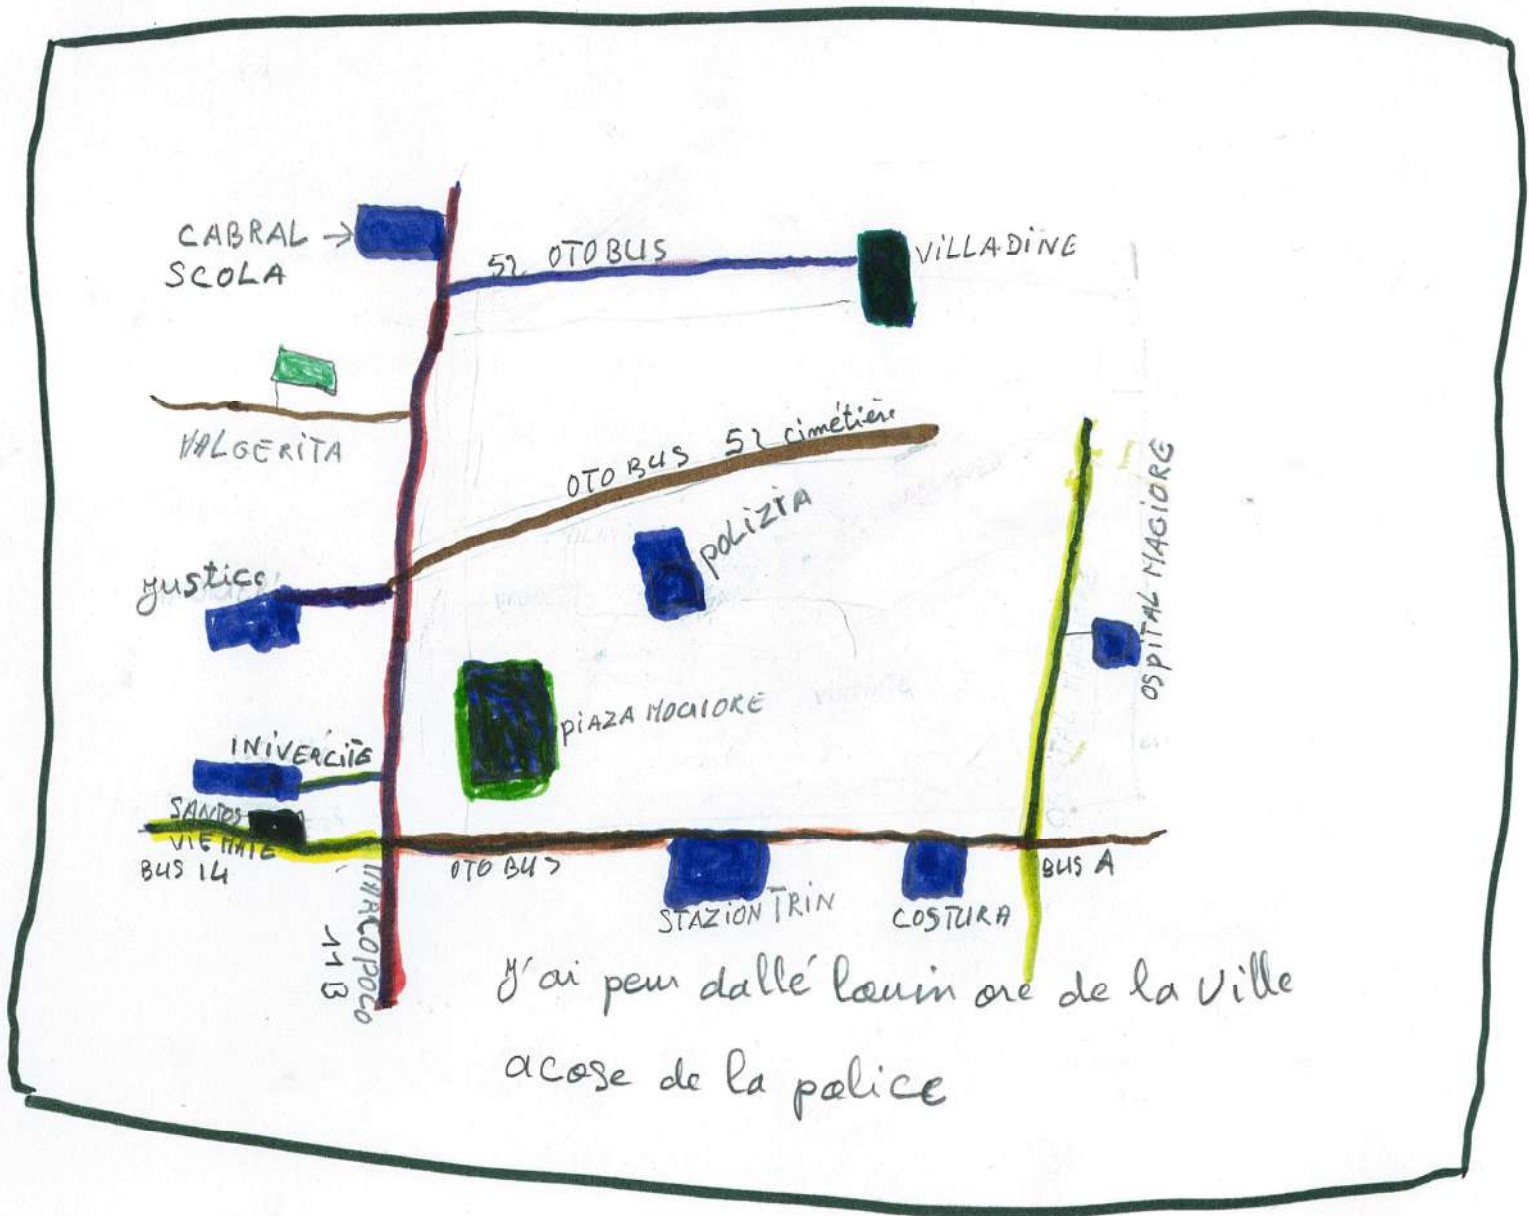 CABRAL →
SCOLA
52 OTOBUS
VILLADINE
MALGERITA
OTOBUS 52 cimétière
POLIZIA
OSPITAL MAGIORE
justice
PIAZA MOGIORE
INIVERCITE
SANTOS
VIEMATE
BUS 14
OTOBUS
BUS A
STAZION TRIN
COSTURA
MARCOPOLO
11 B
J'ai peur dallé louin ore de la ville
acose de la police